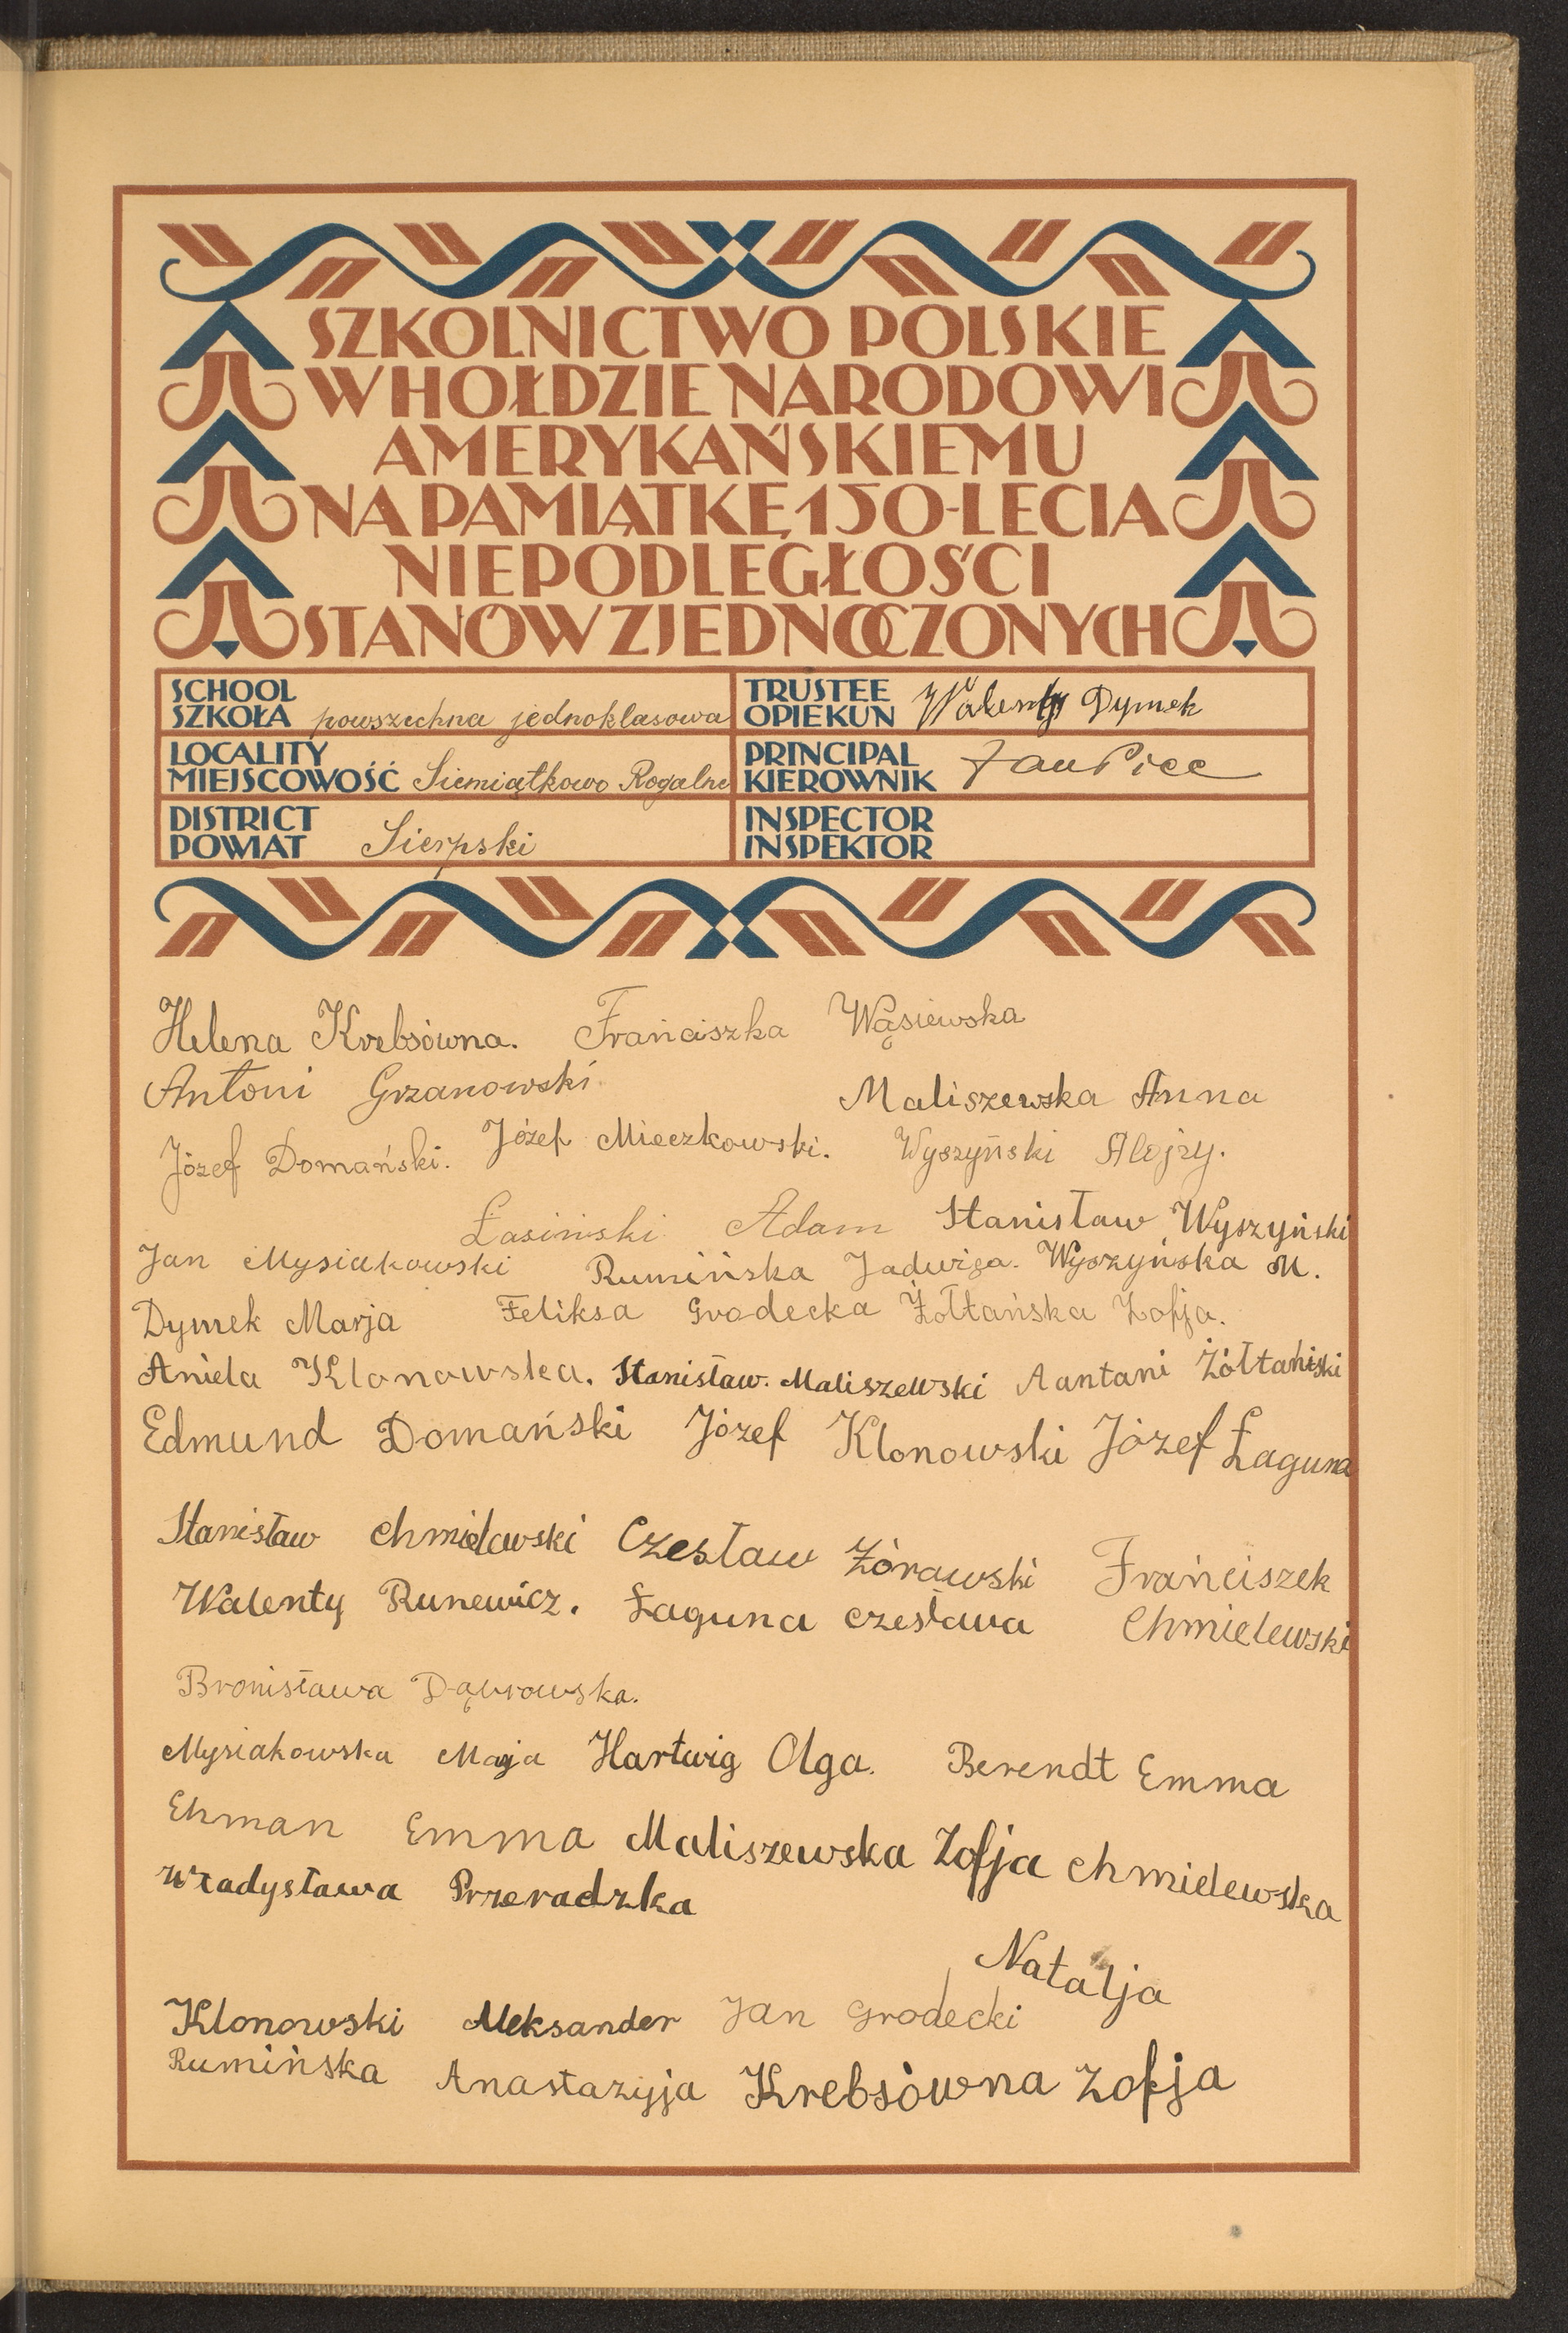 SZKOLNICTWO POLSKIE
W HOŁDZIE NARODOWI
AMERYKAŃSKIEMU
NA PAMIĄTKĘ 150-LECIA
NIEPODLEGŁOŚCI
STANÓW ZJEDNOCZONYCH
SCHOOL
SZKOŁA powszechna jednoklasowa
TRUSTEE
OPIEKUN Walenty Dymek
LOCALITY
MIEJSCOWOŚĆ Siemiątkowo Rogalne
PRINCIPAL
KIEROWNIK Jan Piec
DISTRICT
POWIAT Sierpski
INSPECTOR
INSPEKTOR
Helena Krebsówna. Frańciszka Wąsiewska
Antoni Grzanowski Maliszewska Anna
Józef Domański. Józef Mieczkowski. Wyszyński Alojzy.
Łasiński Adam Stanisław Wyszyński
Jan Mysiakowski Rumińska Jadwiga. Wyszyńska M.
Dymek Marja Feliksa Grodecka Żołtańska Zofja.
Aniela Klonowska. Stanisław. Maliszewski Aantani Żółtański
Edmund Domański Józef Klonowski Józef Łaguna
Stanisław Chmielawski Czesław Żórawski Frańciszek
Walenty Runewicz. Łaguna Czesława Chmielewski
Bronisława Dąbrowska.
Mysiakowska Maja Hartwig Olga. Berendt Emma
Ehman Emma Maliszewska Zofja Chmielewska
Władysława Przeradzka
Natalja
Klonowski Aleksander Jan Grodecki
Rumińska Anastazyja Krebsówna Zofja